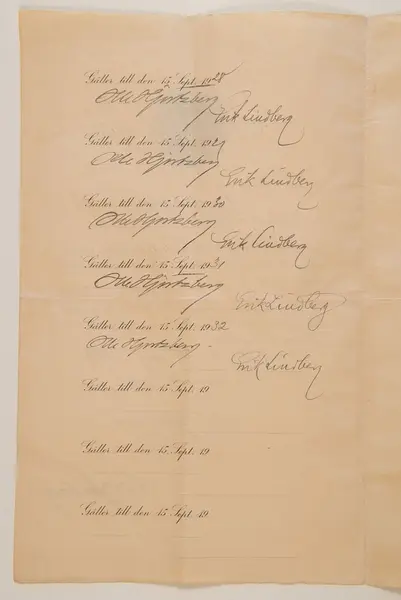 Gäller till den 15 Sept. 1928
Olle Hjortzberg
Erik Lindberg
Gäller till den 15 Sept. 1929
Olle Hjortzberg
Erik Lindberg
Gäller till den 15 Sept. 1930
Olle Hjortzberg
Erik Lindberg
Gäller till den 15 Sept. 1931
Olle Hjortzberg
Erik Lindberg
Gäller till den 15 Sept. 1932
Olle Hjortzberg
Erik Lindberg
Gäller till den 15 Sept. 19
Gäller till den 15 Sept. 19
Gäller till den 15 Sept. 19